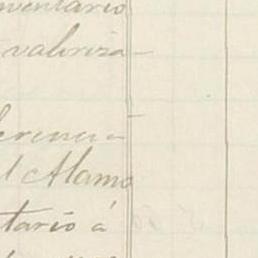 nventario
valoriza-
erencia
l Alamo
tario á